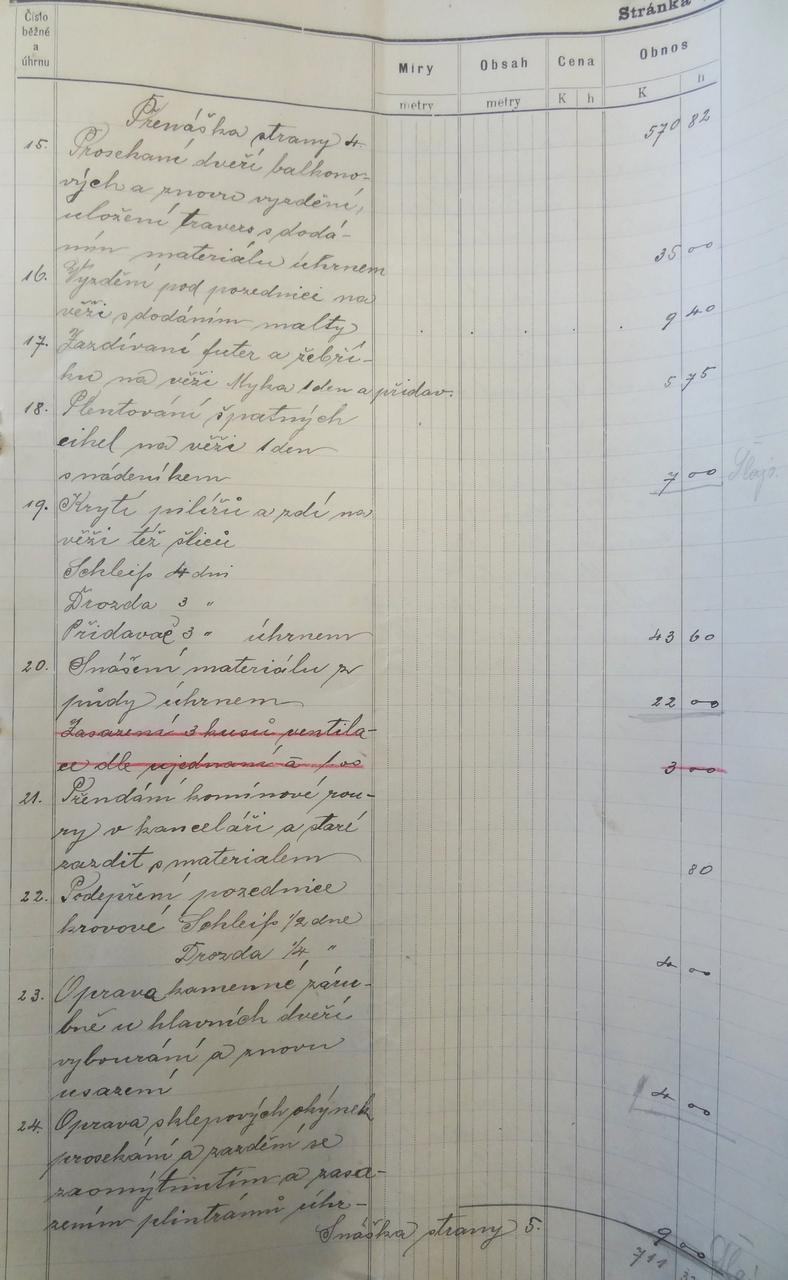 Stránka
Číslo běžné a úhrnu
Míry Obsah Cena Obnos
metry metry K h K h
Přenáška strany 4. 570 82
15. Prosekaní dveří balkono-
vých a znovu vyzdění,
uložení travers s dodá-
ním materiálu úhrnem 35 00
16. Vyzdění pod pozednici na
věži s dodáním malty 9 40
17. Zazdívaní futer a žebří-
ku na věži Myka 1 den a přidav. 5 75
18. Plentování špatných
cihel na věži 1 den
s nádeníkem 7 00
19. Krytí pilířů a zdí na
věži též šliců
Schleifs 4 dni
Drozda 3 "
Přidavač 3 " úhrnem 43 60
20. Snášení materiálu z
půdy úhrnem 22 00
Zasazení 3 kusů ventila-
ce dle ujednaní á 1 00 3 00
21. Přendání komínové rou-
ry v kanceláři a staré
zazdit s materialem 80
22. Podepření pozednice
krovové Schleifs 1/2 dne
Drozda 1/4 " 4 00
23. Oprava kamenné záru-
bně u hlavních dveří
vybourání a znovu
usazení 4 00
24. Oprava sklepových okýnek
prosekání a zazdění se
zaomýtnutím a zasa-
zením úhr-
Snáška strany 5. 9 00
711